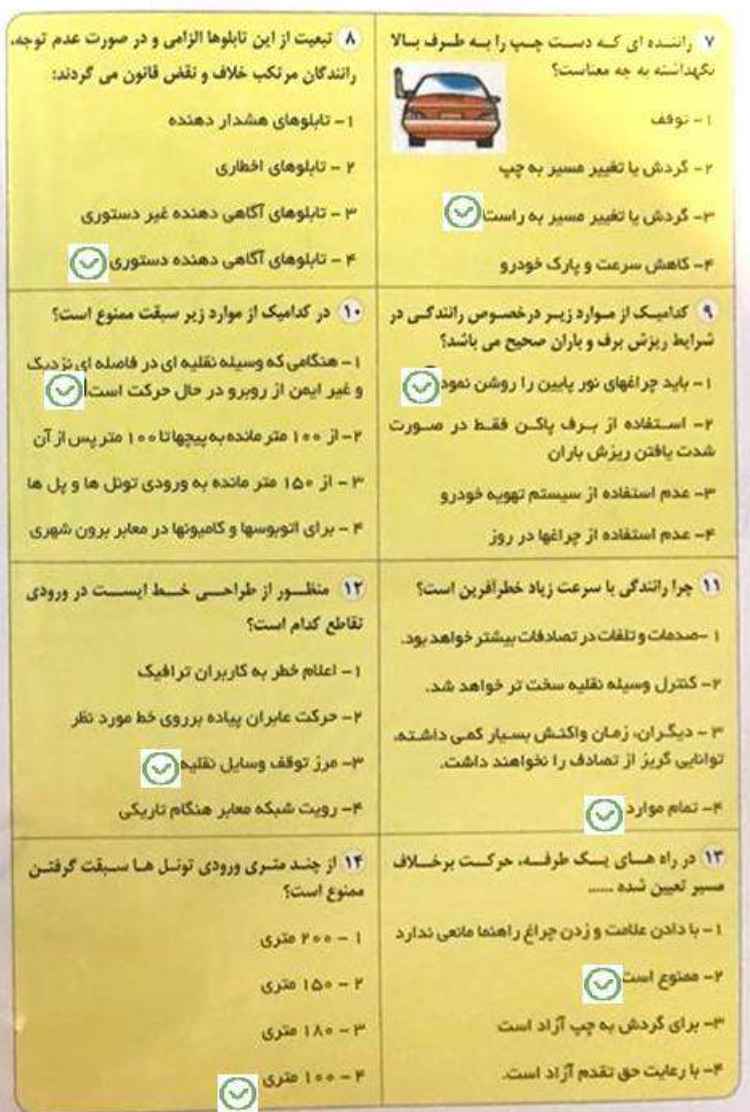 ۷ راننده ای که دست چپ را به طرف بالا
نگهداشته به چه معناست؟
۱- توقف
۲- گردش یا تغییر مسیر به چپ
۳- گردش یا تغییر مسیر به راست
۴- کاهش سرعت و پارک خودرو
۸ تبعیت از این تابلوها الزامی و در صورت عدم توجه،
رانندگان مرتکب خلاف و نقض قانون می گردند:
۱- تابلوهای هشدار دهنده
۲ - تابلوهای اخطاری
۳ - تابلوهای آگاهی دهنده غیر دستوری
۴ - تابلوهای آگاهی دهنده دستوری
۹ کدامیک از موارد زیر درخصوص رانندگی در
شرایط ریزش برف و باران صحیح می باشد؟
۱- باید چراغهای نور پایین را روشن نمود
۲- استفاده از برف پاکن فقط در صورت
شدت یافتن ریزش باران
۳- عدم استفاده از سیستم تهویه خودرو
۴- عدم استفاده از چراغها در روز
۱۰ در کدامیک از موارد زیر سبقت ممنوع است؟
۱- هنگامی که وسیله نقلیه ای در فاصله ای نزدیک
و غیر ایمن از روبرو در حال حرکت است
۲- از ۱۰۰ متر مانده به پیچها تا ۱۰۰ متر پس از آن
۳ - از ۱۵۰ متر مانده به ورودی تونل ها و پل ها
۴ - برای اتوبوسها و کامیونها در معابر برون شهری
۱۱ چرا رانندگی با سرعت زیاد خطرآفرین است؟
۱ -صدمات و تلفات در تصادفات بیشتر خواهد بود.
۲- کنترل وسیله نقلیه سخت تر خواهد شد.
۳ - دیگران، زمان واکنش بسیار کمی داشته،
توانایی گریز از تصادف را نخواهند داشت.
۴- تمام موارد
۱۲ منظور از طراحی خط ایست در ورودی
تقاطع کدام است؟
۱- اعلام خطر به کاربران ترافیک
۲- حرکت عابران پیاده برروی خط مورد نظر
۳- مرز توقف وسایل نقلیه
۴- رویت شبکه معابر هنگام تاریکی
۱۳ در راه های یک طرفه، حرکت برخلاف
مسیر تعیین شده ......
۱- با دادن علامت و زدن چراغ راهنما مانعی ندارد
۲- ممنوع است
۳- برای گردش به چپ آزاد است
۴- با رعایت حق تقدم آزاد است.
۱۴ از چند متری ورودی تونل ها سبقت گرفتن
ممنوع است؟
۱ - ۲۰۰ متری
۲ - ۱۵۰ متری
۳ - ۱۸۰ متری
۴ - ۱۰۰ متری